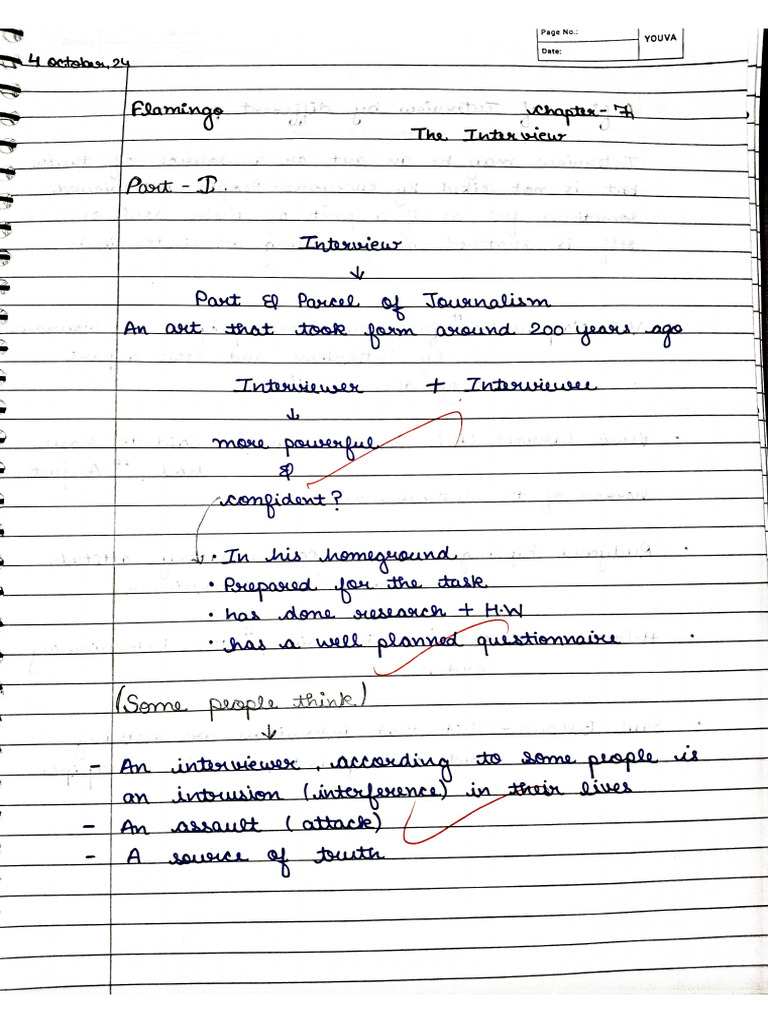 Page No.:
Date:
YOUVA
4 October, 24
Flamingo Chapter-7
The Interview
Part - I.
Interview
↓
Part & Parcel of Journalism
An art that took form around 200 years ago
Interviewer + Interviewee
↓
more powerful
&
confident?
• In his homeground
• Prepared for the task
• has done research + H.W
• has a well planned questionnaire
(Some people think)
↓
- An interviewer, according to some people is
an intrusion (interference) in their lives
- An assault (attack)
- A source of truth